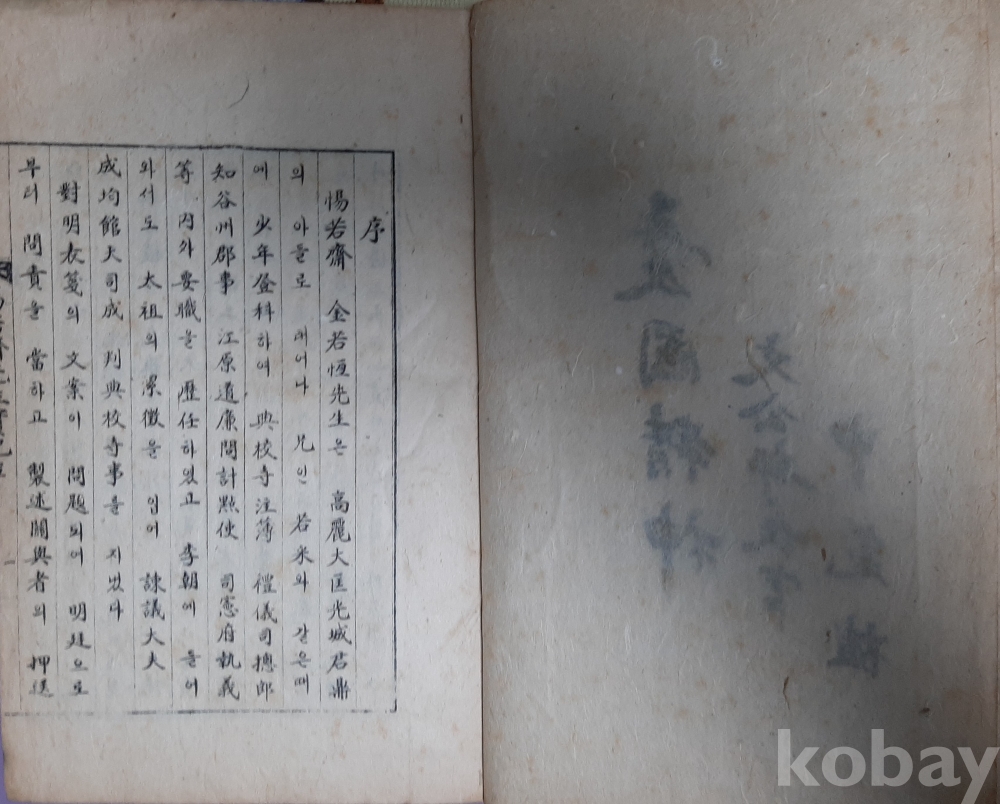 序
惕若齋 金若恒先生은 高麗大匡光城君鼎
의 아들로 태어나 兄인 若采와 같은때
에 少年登科하여 典校寺注簿 禮儀司摠郎
知谷州郡事 江原道廉問計點使 司憲府執義
等 內外要職을 歷任하였고 李朝에 들어
와서도 太祖의 累徵을 입어 諫議大夫
成均館大司成 判典校寺事를 지냈다
對明表箋의 文案이 問題되어 明廷으로
부터 問責을 當하고 製述關與者의 押送
kobay